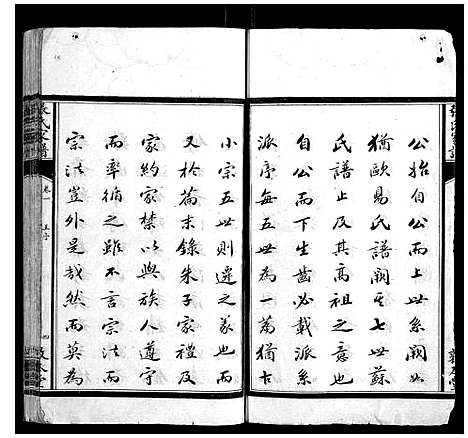 公始自公而上世系闕如
猶歐易氏譜闕其七世蘇
氏譜止及其高祖之意也
自公而下生齒必載派系
派序每五世為一篇猶古
小宗五世則遷之義也而
又於篇末錄朱子家禮及
家約家禁以與族人遵守
而率循之雖不言宗法而
宗法豈外是哉然而莫為
張氏家譜
卷一
四